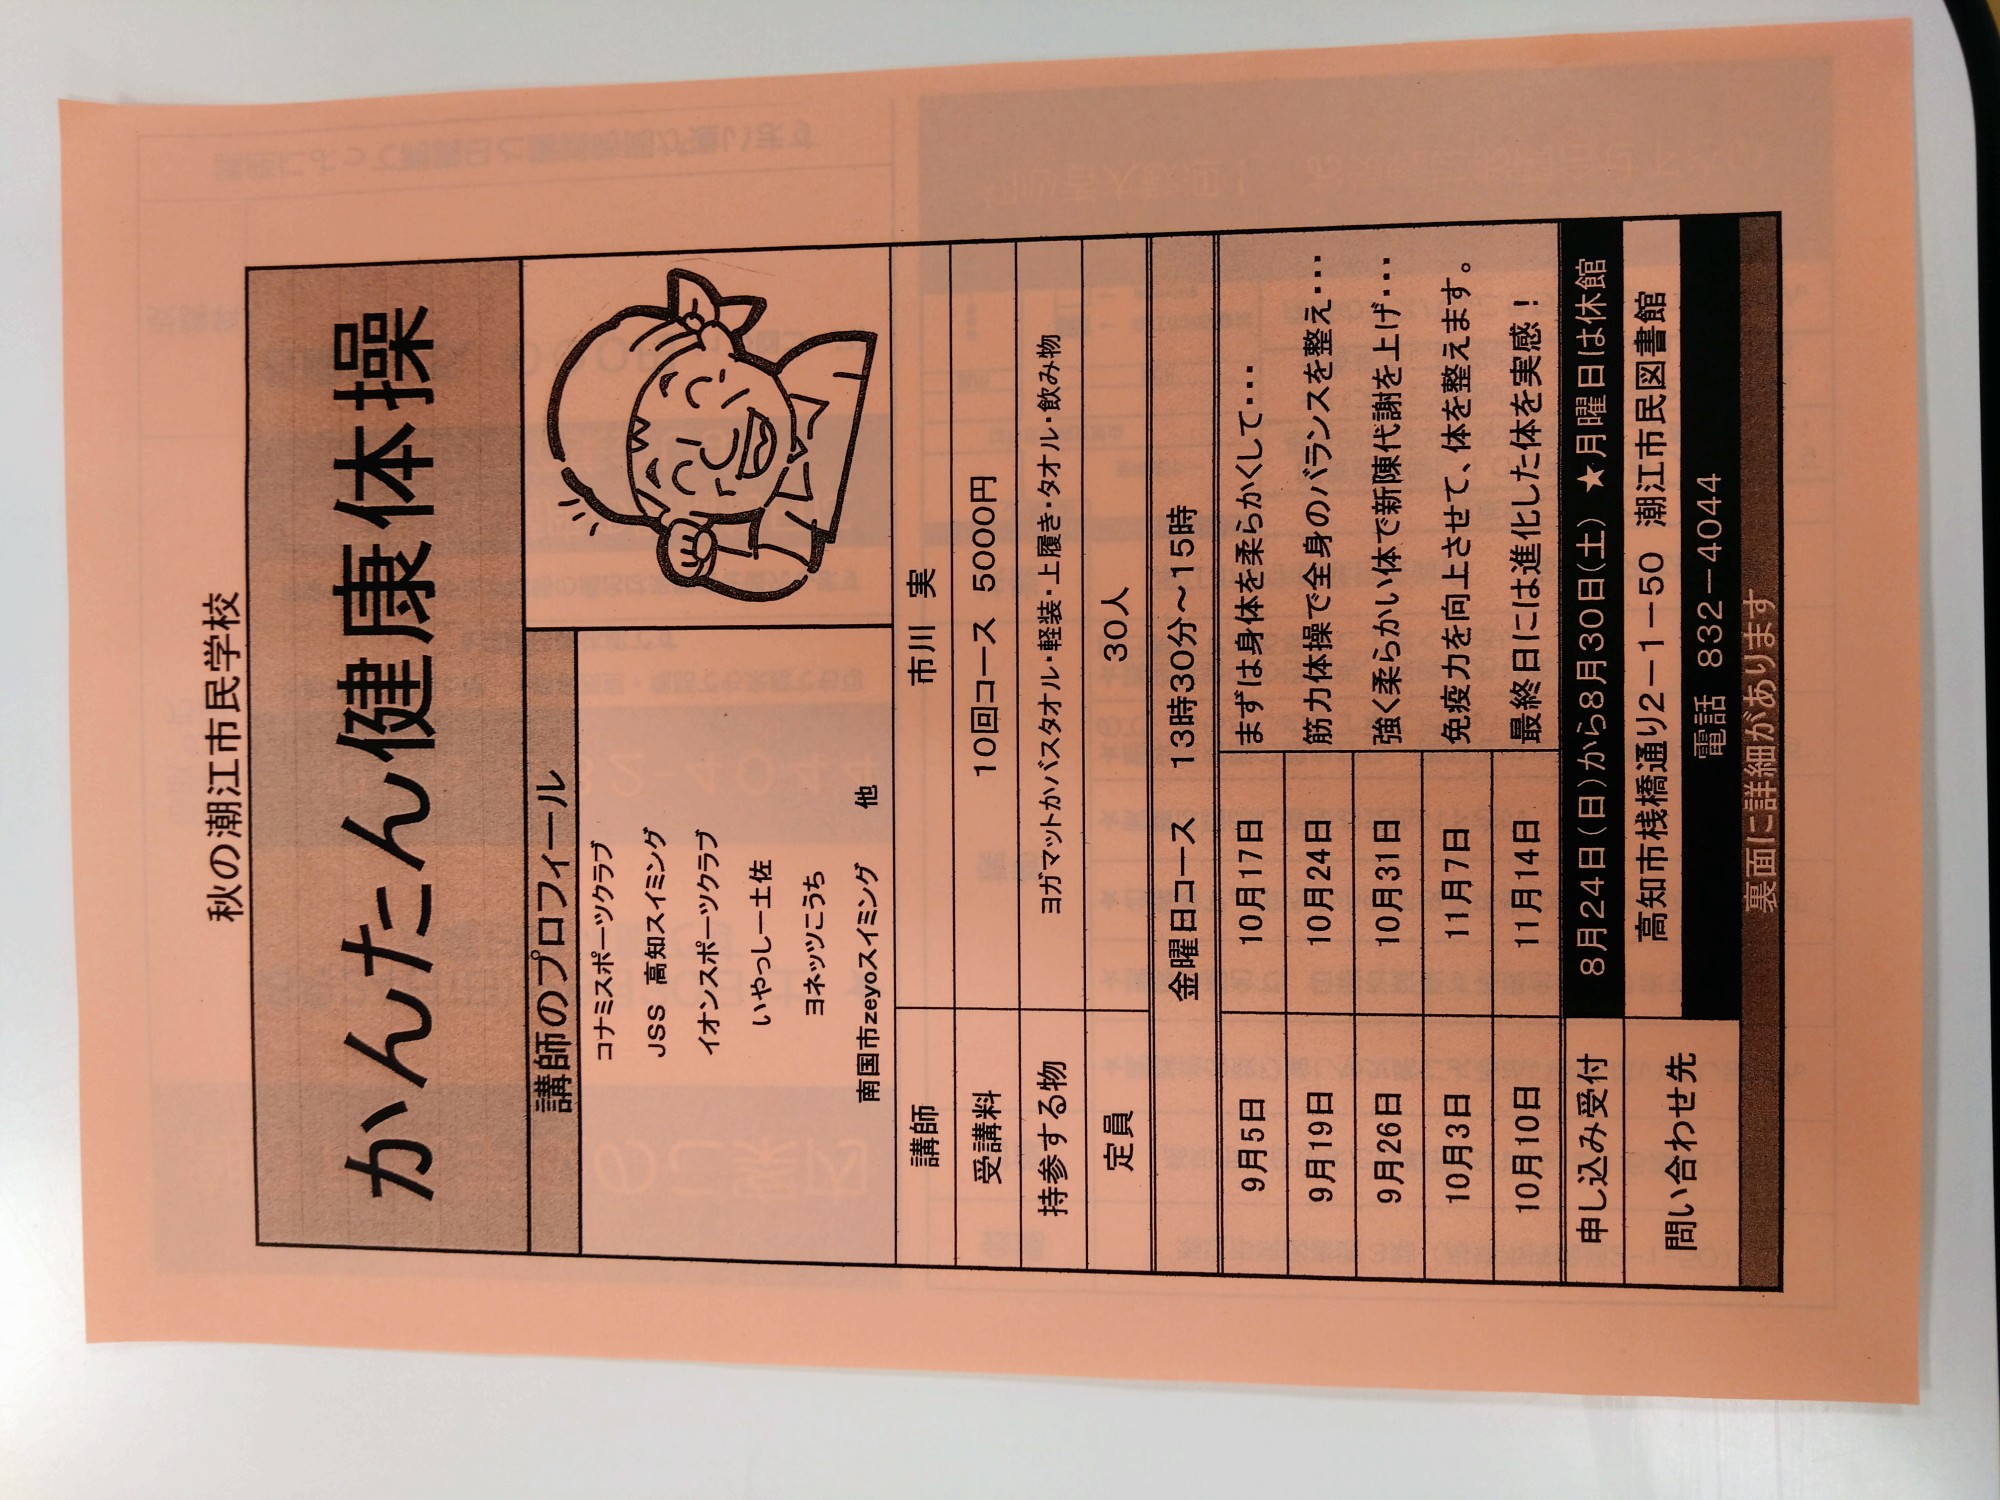 秋の潮江市民学校
かんたん健康体操
講師のプロフィール
コナミスポーツクラブ
JSS 高知スイミング
イオンスポーツクラブ
いやっしー土佐
ヨネッツこうち
南国市zeyoスイミング 他
講師 市川 実
受講料 10回コース 5000円
持参する物 ヨガマットかバスタオル・軽装・上履き・タオル・飲み物
定員 30人
金曜日コース 13時30分～15時
9月5日 10月17日 まずは身体を柔らかくして・・・
9月19日 10月24日 筋力体操で全身のバランスを整え・・・
9月26日 10月31日 強く柔らかい体で新陳代謝を上げ・・・
10月3日 11月7日 免疫力を向上させて、体を整えます。
10月10日 11月14日 最終日には進化した体を実感！
申し込み受付 8月24日(日)から8月30日(土) ★月曜日は休館
問い合わせ先 高知市桟橋通り2－1－50 潮江市民図書館
電話 832－4044
裏面に詳細があります